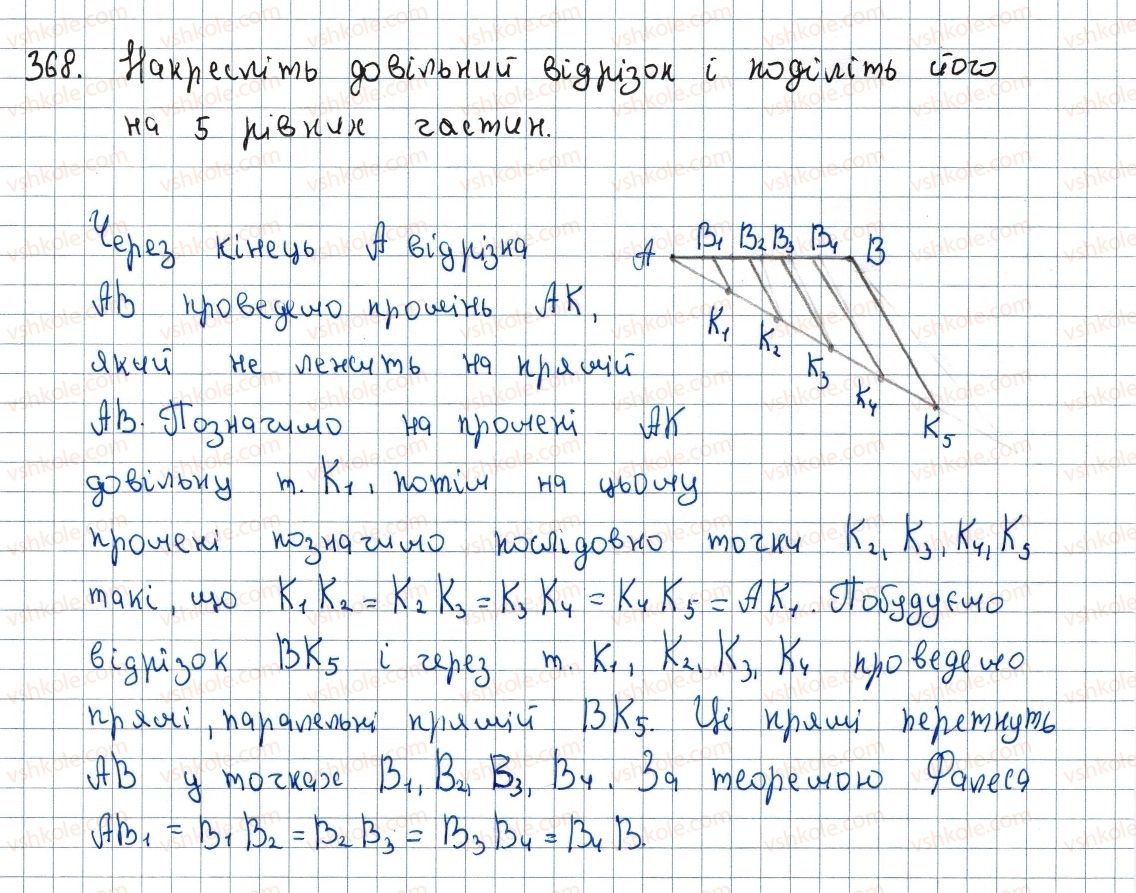 368. Накресліть довільний відрізок і поділіть його
на 5 рівних частин.
Через кінець A відрізна
AB проведемо промінь AK,
який не лежить на прямій
AB. Позначимо на промені AK
довільну т. K₁, потім на цьому
промені позначимо послідовно точки K₂, K₃, K₄, K₅
такі, що K₁K₂ = K₂K₃ = K₃K₄ = K₄K₅ = AK₁. Побудуємо
відрізок BK₅ і через т. K₁, K₂, K₃, K₄ проведемо
прямі, паралельні прямій BK₅. Ці прямі перетнуть
AB у точках B₁, B₂, B₃, B₄. За теоремою Фалеса
AB₁ = B₁B₂ = B₂B₃ = B₃B₄ = B₄B.
A B₁ B₂ B₃ B₄ B
K₁ K₂ K₃ K₄ K₅
vshkole.com